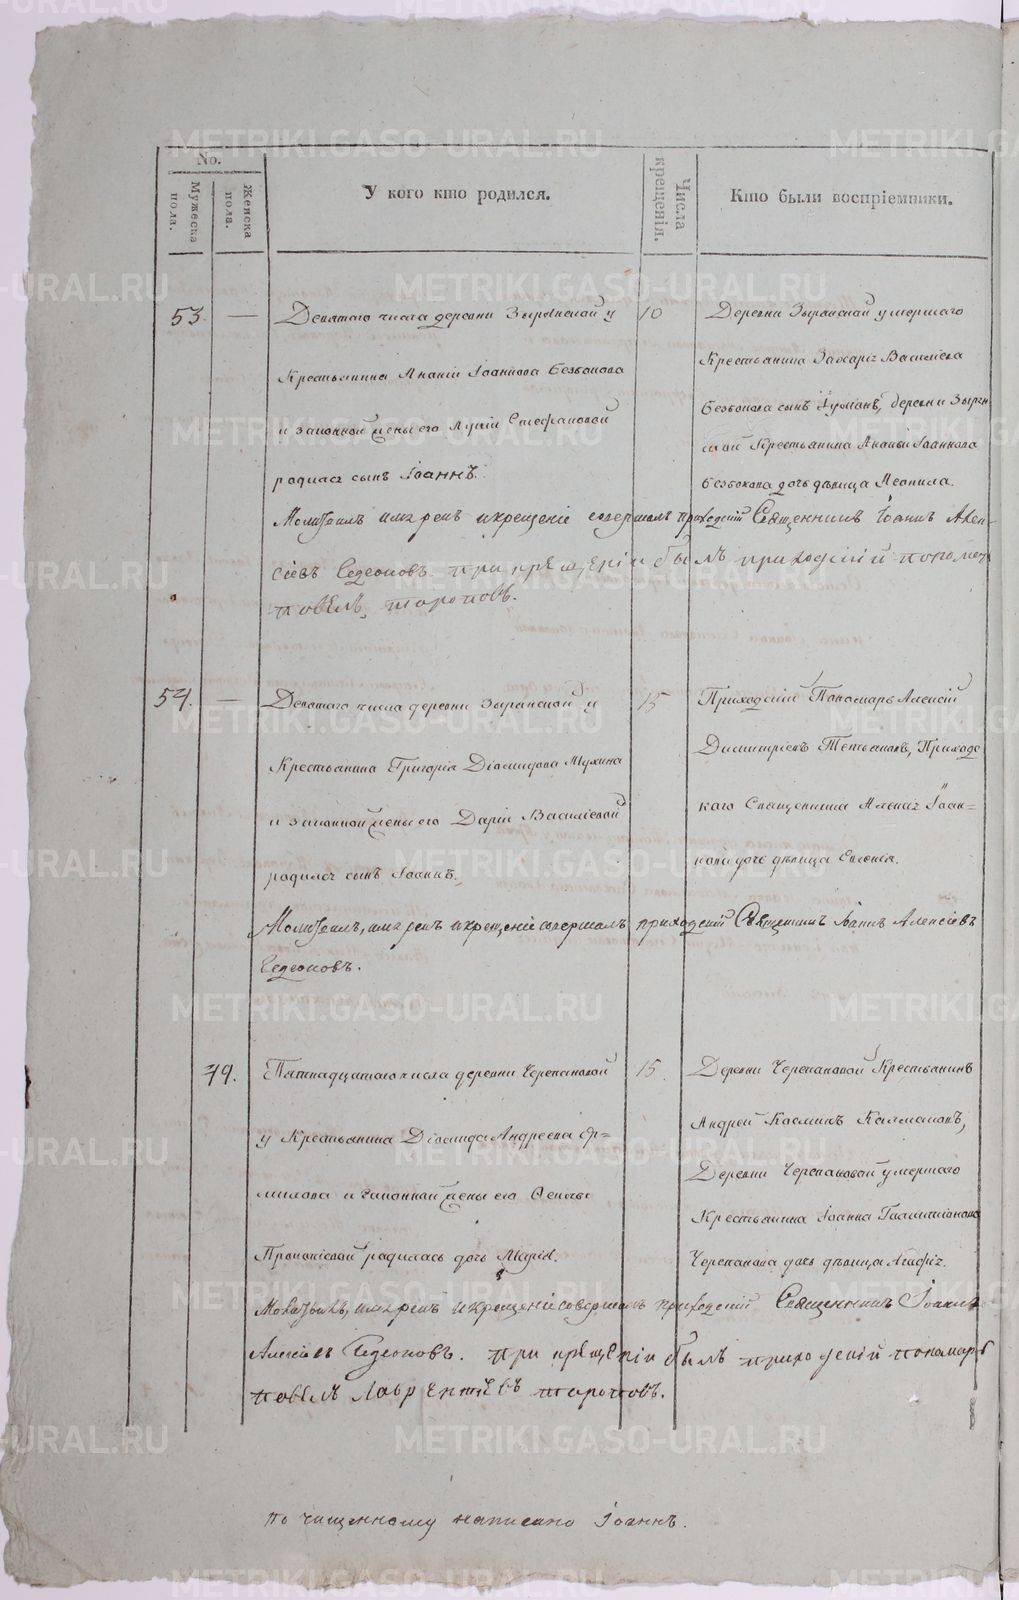 No.
Мужеска пола.
Женска пола.
У кого кто родился.
Числа крещенія.
Кто были воспріемники.
53. — Девятаго числа деревни Зырянской у
Крестьянина Ананіи Іоаннова Безбокова
и законной жены его Лукіи Стефановой
родился сынъ Іоаннъ.
10
Деревни Зырянской умершаго
Крестьянина Захаріи Василіева
Безбокова сынъ деревни Зырян-
ской Крестьянина Ананіи Іоаннова
Безбокова дочь дѣвица Неонила.
Молитвилъ имя рекъ и крещеніе совершалъ приходскій Священникъ Іоаннъ Алек-
сіевъ Гедеоновъ при крещеніи былъ приходскій пономарь
павелъ тороповъ.
54. — Девятаго числа деревни Зырянской у
Крестьянина Григорія Діомидова Мухина
и законной жены его Даріи Василіевой
родился сынъ Іоаннъ.
15
Приходскій Пономарь Алексій
Димитріевъ Приходс
каго Священника Іоан-
нова дочь дѣвица Евгенія.
Молитвилъ, имя рекъ и крещеніе совершалъ приходскій Священникъ Іоаннъ Алексіевъ
Гедеоновъ.
79. Пятнадцатаго числа деревни Черепановой
у Крестьянина Діомида Андреева Ер-
милова и законной жены его
Прокопіевой родилась дочь Марія.
15.
Деревни Черепановой Крестьянинъ
Андрей Козминъ Калмаковъ,
Деревни Черепановой умершаго
Крестьянина Іоанна Галактіонова
Черепанова дочь дѣвица Агафія.
Молитвилъ, имя рекъ и крещеніе совершалъ приходскій Священникъ Іоаннъ
Алексіевъ Гедеоновъ. при крещеніи былъ приходскій пономарь
павелъ лаврентіевъ тороповъ.
по чищенному написано Іоаннъ.
METRIKI.GASO-URAL.RU